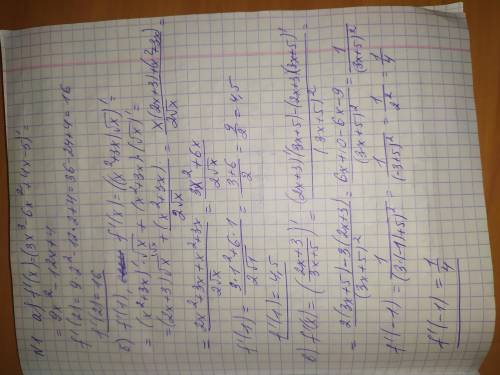 N1 а) f'(x)=(3x³-6x²+4x-5)'=
=9x²-12x+4
f'(2)=9·2²-12·2+4=36-24+4=16
f'(2)=16
б) f'(1), f'(x)=((x²+3x)√x)'=
=(x²+3x)'·√x+(x²+3x)(√x)'=
=(2x+3)√x+(x²+3x)/2√x=x(2x+3)+(x²+3x)/2√x=
=2x²+3x+x²+3x/2√x=3x²+6x/2√x
f'(1)=3·1²+6·1/2√1=3+6/2=9/2=4,5
f'(1)=4,5
в) f'(x)=(2x+3/3x+5)'=(2x+3)'(3x+5)-(2x+3)(3x+5)'/(3x+5)²=
=2(3x+5)-3(2x+3)/(3x+5)²=6x+10-6x-9/(3x+5)²=1/(3x+5)²
f'(-1)=1/(3(-1)+5)²=1/(-3+5)²=1/2²=1/4
f'(-1)=1/4